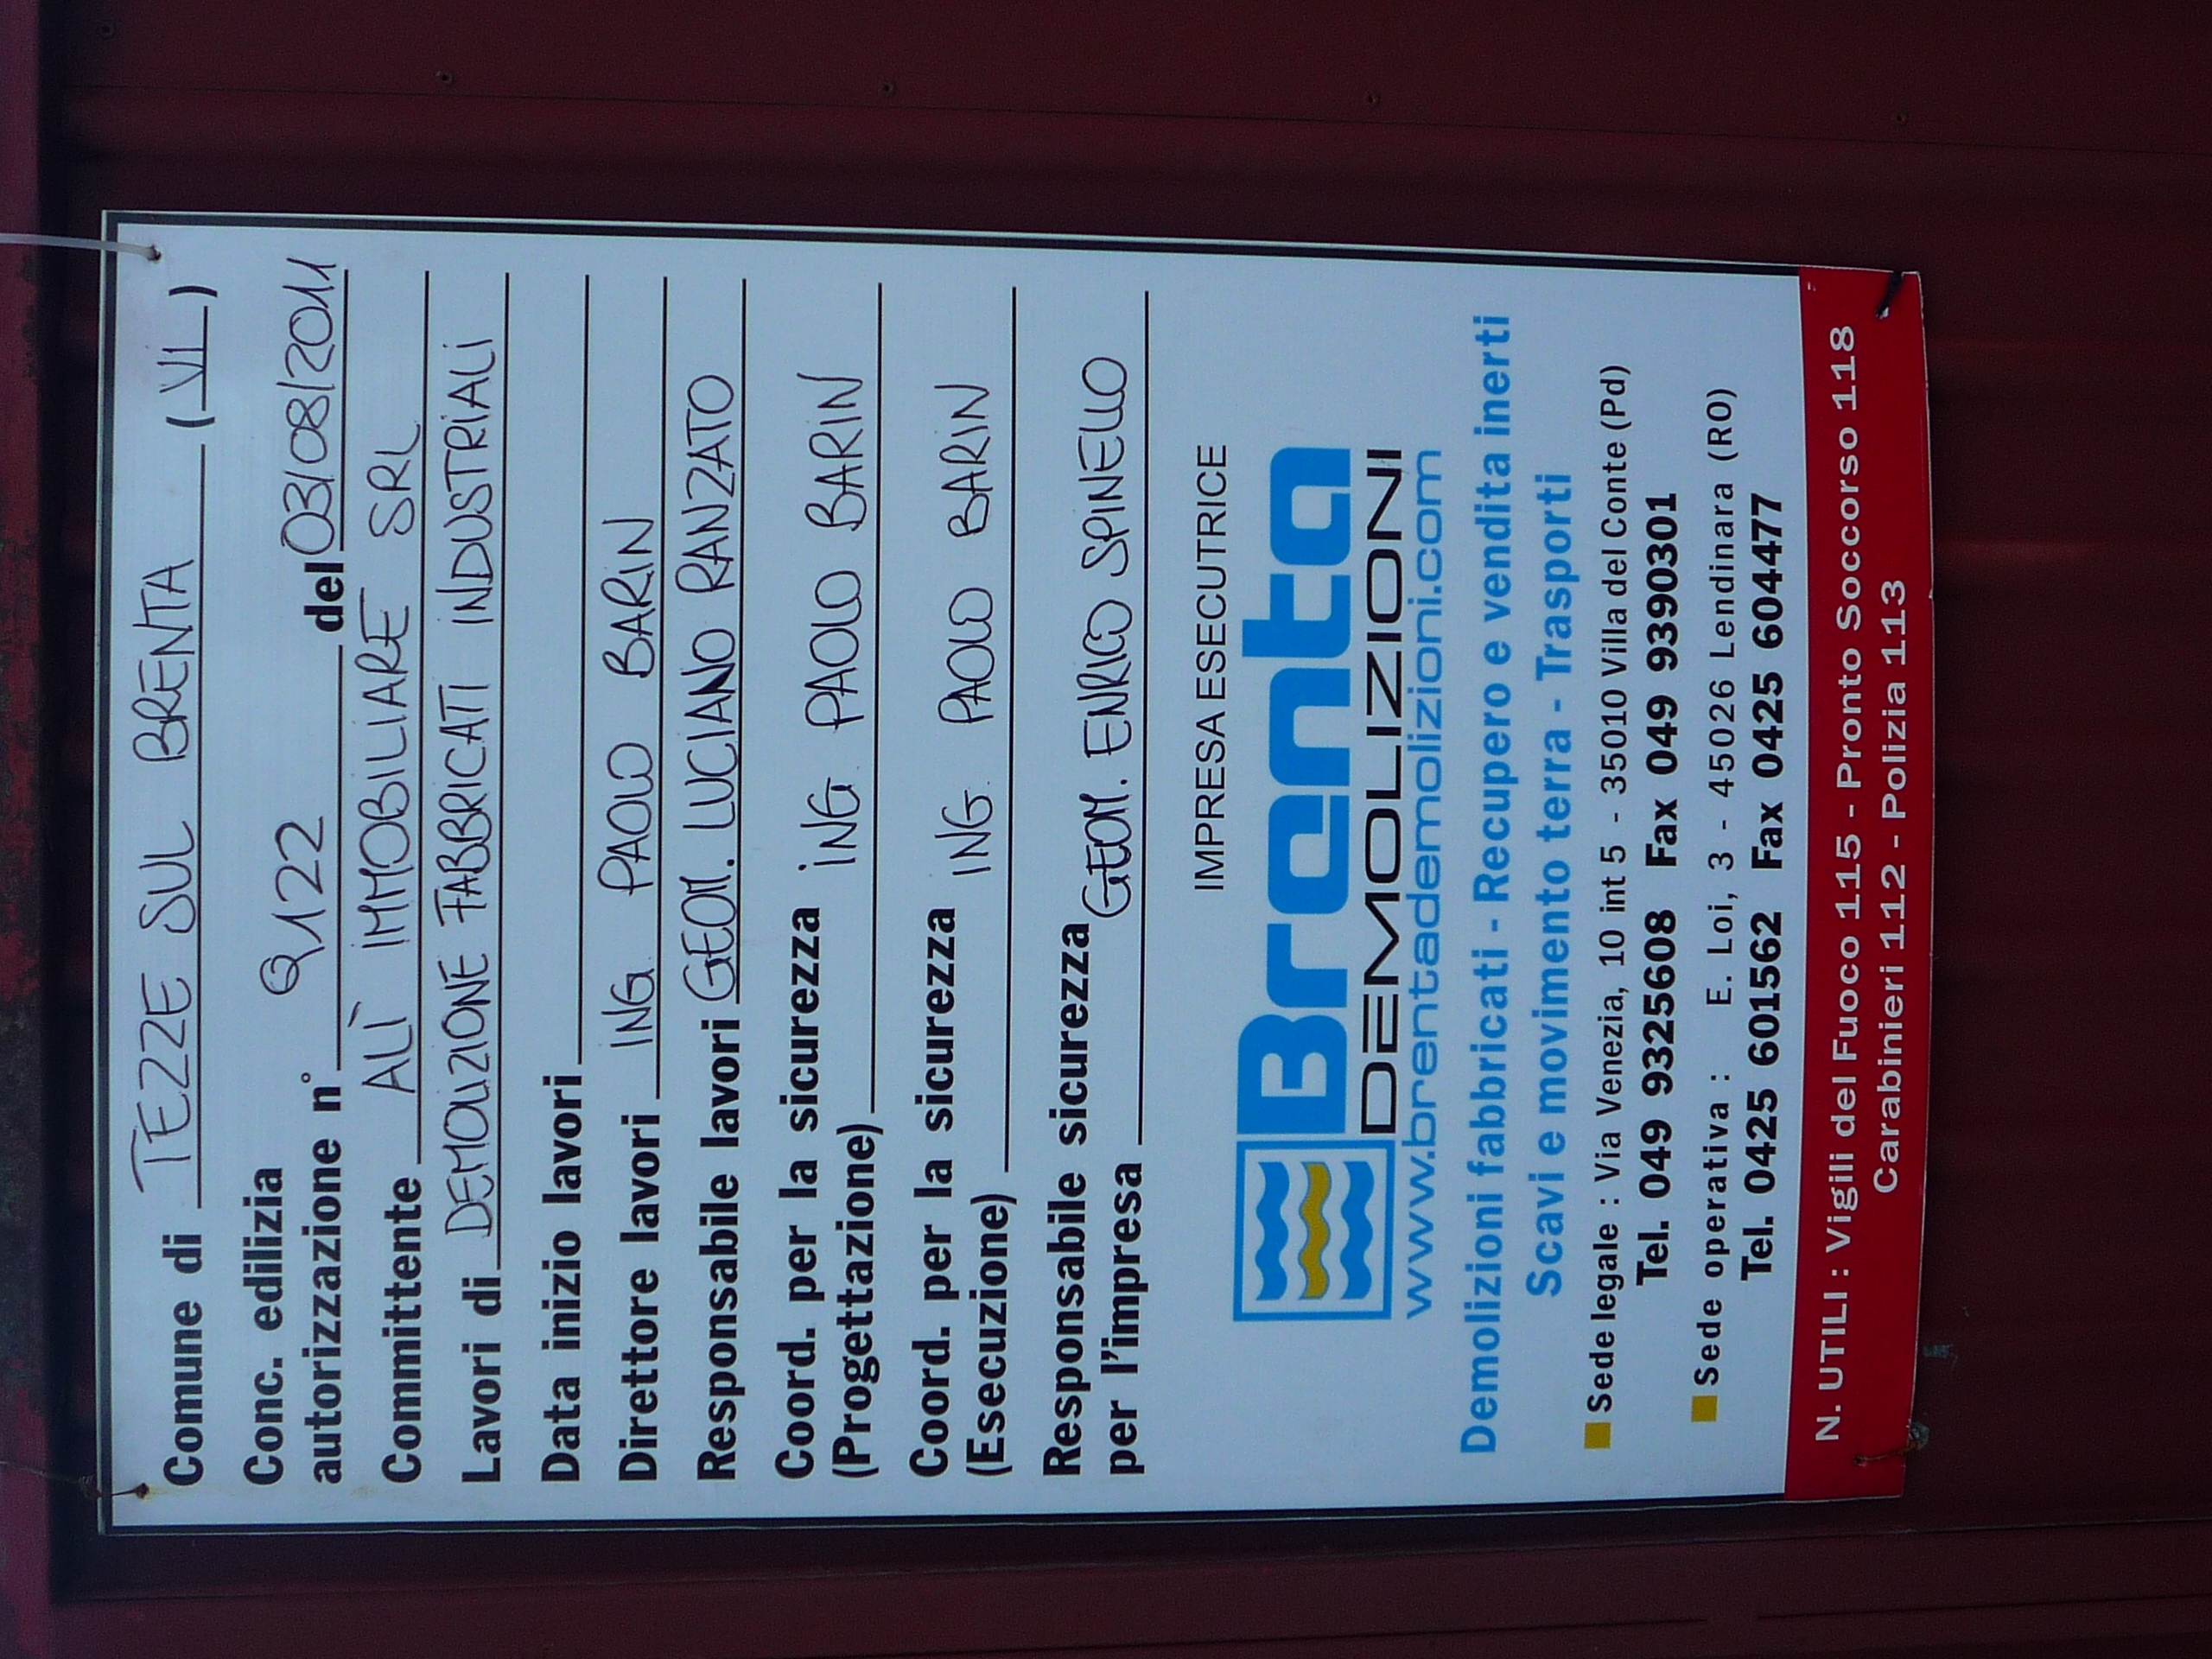 Comune di TEZZE SUL BRENTA (VI)
Conc. edilizia
autorizzazione n° 9122 del 03/08/2011
Committente ALÌ IMMOBILIARE SRL
Lavori di DEMOLIZIONE FABBRICATI INDUSTRIALI
Data inizio lavori
Direttore lavori ING. PAOLO BARIN
Responsabile lavori GEOM. LUCIANO RANZATO
Coord. per la sicurezza ING. PAOLO BARIN
(Progettazione)
Coord. per la sicurezza ING. PAOLO BARIN
(Esecuzione)
Responsabile sicurezza GEOM. ENRICO SPINELLO
per l'impresa
IMPRESA ESECUTRICE
Brenta
DEMOLIZIONI
www.brentademolizioni.com
Demolizioni fabbricati - Recupero e vendita inerti
Scavi e movimento terra - Trasporti
Sede legale : Via Venezia, 10 int 5 - 35010 Villa del Conte (Pd)
Tel. 049 9325608 Fax 049 9390301
Sede operativa : E. Loi, 3 - 45026 Lendinara (RO)
Tel. 0425 601562 Fax 0425 604477
N. UTILI : Vigili del Fuoco 115 - Pronto Soccorso 118
Carabinieri 112 - Polizia 113